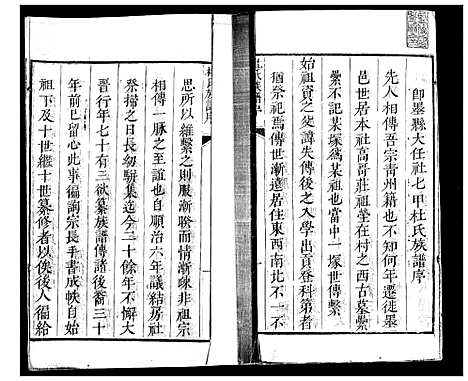 即墨縣大任社七甲杜氏族譜序
先人相傳吾宗青州籍也不何年遷徙墨
邑世居本社高哥莊祖塋在村之西古墓纍
纍不記某塚爲某祖也當中一塚世傳繫
始祖資之父諱失傳後之入學出貢登科者
猶祭祀焉傳世漸遠居住東西南北不一不
思所以維繫之則服漸盡而情漸疎非祖宗
相傳一脉之至意也自順治六年議結房社
祭掃之日長幼駢集迄今二十餘年不懈大
晉行年七十有三欲纂族譜傳諸後裔三十
年前已留心此事徧詢宗長手書成帙自始
祖下及十世繼十世纂修者以俟後人徧給